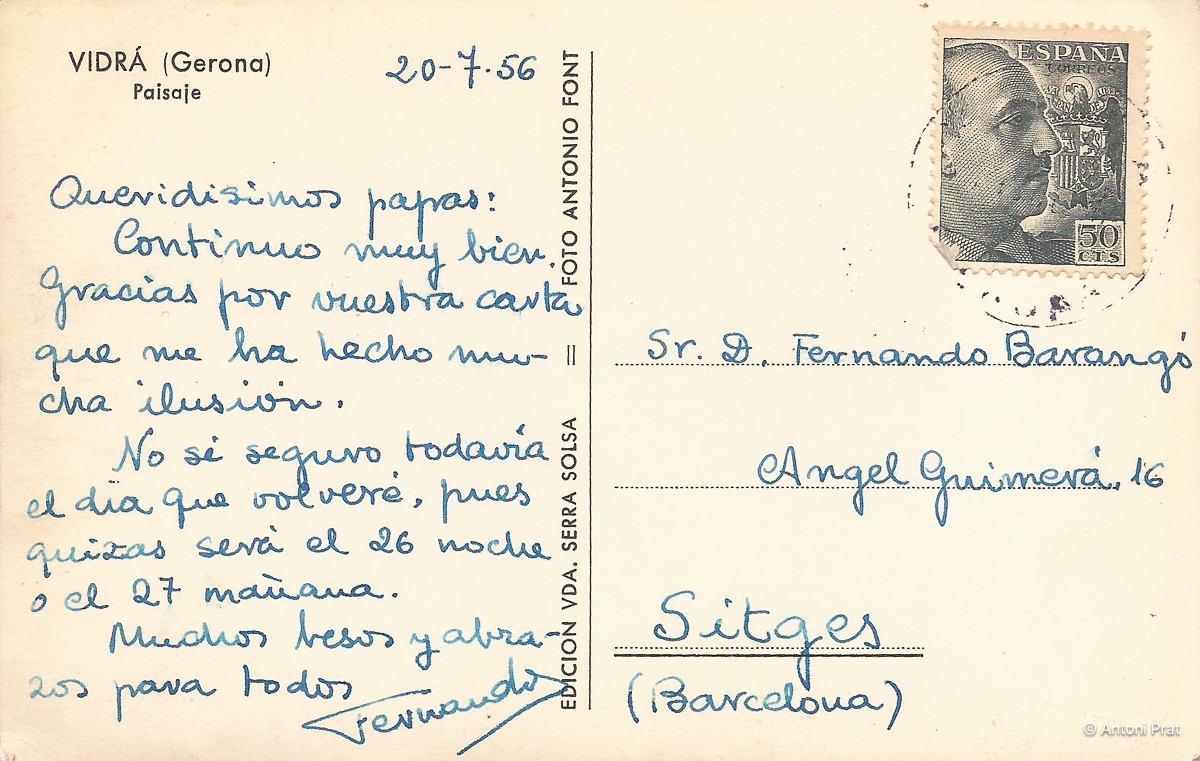 VIDRÁ (Gerona)
Paisaje
20-7-56
Queridisimos papas:
Continuo muy bien.
Gracias por vuestra carta
que me ha hecho mu-
cha ilusión.
No sé seguro todavía
el día que volveré, pues
quizas será el 26 noche
o el 27 mañana.
Muchos besos y abra-
zos para todos
Fernando
EDICION VDA. SERRA SOLSA = FOTO ANTONIO FONT
ESPAÑA
CORREOS
50
CTS
Sr. D. Fernando Barangó
Angel Guimerá, 16
Sitges
(Barcelona)
© Antoni Prat